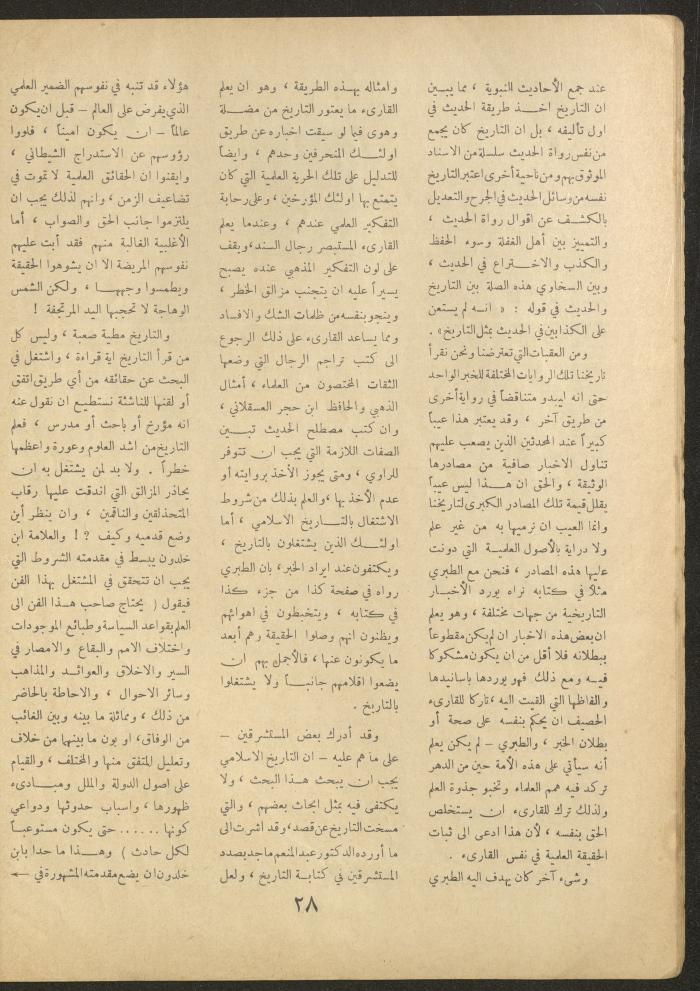 عند جمع الأحاديث النبوية ، مما يبين
ان التاريخ اخذ طريقة الحديث في
اول تأليفه ، بل ان التاريخ كان يجمع
من نفس رواة الحديث سلسلة من الاسناد
الموثوق بهم ومن ناحية أخرى اعتبر التاريخ
نفسه من وسائل الحديث في الجرح والتعديل
بالكشف عن اقوال رواة الحديث ،
والتمييز بين أهل الغفلة وسوء الحفظ
والكذب والاختراع في الحديث ،
وبين السخاوي هذه الصلة بين التاريخ
والحديث في قوله : « انه لم يستعن
على الكذابين في الحديث بمثل التاريخ» .
ومن العقبات التي تعترضنا ونحن نقرأ
تاريخنا تلك الروايات المختلفة للخبر الواحد
حتى انه ليبدو متناقضاً في رواية أخرى
من طريق آخر ، وقد يعتبر هذا عيباً
كبيراً عند المحدثين الذين يصعب عليهم
تناول الاخبار صافية من مصادرها
الوثيقة ، والحق ان هذا ليس عيباً
يقلل قيمة تلك المصادر الكبرى لتاريخنا
وانما العيب ان نرميها به من غير علم
ولا دراية بالأصول العلمية التي دونت
عليها هذه المصادر ، فنحن مع الطبري
مثلاً في كتابه نراه يورد الأخبار
التاريخية من جهات مختلفة ، وهو يعلم
ان بعض هذه الاخبار ان لم يكن مقطوعاً
ببطلانه فلا أقل من ان يكون مشكوكا
فيه ومع ذلك فهو يوردها باسانيدها
والفاظها التي القيت اليه ، تاركا للقارىء
الحصيف ان يحكم بنفسه على صحة أو
بطلان الخبر ، والطبري – لم يكن يعلم
أنه سيأتي على هذه الأمة حين من الدهر
تركد فيه همم العلماء وتخبو جذوة العلم
ولذلك ترك للقارىء ان يستخلص
الحق بنفسه ، لأن هذا ادعى الى ثبات
الحقيقة العلمية في نفس القارىء .
وشيء آخر كان يهدف اليه الطبري
وامثاله بهذه الطريقة ، وهو ان يعلم
القارىء ما يعتور التاريخ من مضلة
وهوى فيما لو سيقت اخباره عن طريق
اولئك المنحرفين وحدهم ، وايضاً
للتدليل على تلك الحرية العلمية التي كان
يتمتع بها اولئك المؤرخين ، وعلى رحابة
التفكير العلمي عندهم ، وعندما يعلم
القارىء المستبصر رجال السند ، ويقف
على لون التفكير المذهبي عنده يصبح
يسيراً عليه ان يتجنب مزالق الخطر ،
وينجو بنفسه من ظلمات الشك والافساد
ومما يساعد القارىء على ذلك الرجوع
الى كتب تراجم الرجال التي وضعها
الثقات المختصون من العلماء ، أمثال
الذهبي والحافظ ابن حجر العسقلاني ،
وان كتب مصطلح الحديث تبين
الصفات اللازمة التي يجب ان تتوفر
للراوي ، ومتى يجوز الأخذ بروايته أو
عدم الأخذ بها ، والعلم بذلك من شروط
الاشتغال بالتاريخ الاسلامي ، أما
اولئك الذين يشتغلون بالتاريخ ،
ويكتفون عند ايراد الخبر ، بان الطبري
رواه في صفحة كذا من جزء كذا
في كتابه ، ويتخبطون في اهوائهم
ويظنون انهم وصلوا الحقيقة وهم أبعد
ما يكونون عنها ، فالأجمل بهم ان
يضعوا اقلامهم جانباً ولا يشتغلوا
بالتاريخ .
وقد أدرك بعض المستشرقين –
على ما هم عليه – ان التاريخ الاسلامي
يجب ان يبحث هذا البحث ، ولا
يكتفى فيه بمثل ابحاث بعضهم ، والتي
مسخت التاريخ عن قصد ، وقد اشرت الى
ما أورده الدكتور عبد المنعم ماجد بصدد
المستشرقين في كتابة التاريخ ، ولعل
هؤلاء قد تنبه في نفوسهم الضمير العلمي
الذي يفرض على العالم – قبل ان يكون
عالماً – ان يكون اميناً ، فلووا
رؤوسهم عن الاستدراج الشيطاني ،
وايقنوا ان الحقائق العلمية لا تموت في
تضاعيف الزمن ، وانهم لذلك يجب ان
يلتزموا جانب الحق والصواب ، أما
الأغلبية الغالبة منهم فقد أبت عليهم
نفوسهم المريضة الا ان يشوهوا الحقيقة
ويطمسوا وجهها ، ولكن الشمس
الوهاجة لا تحجبها اليد المرتجفة !
والتاريخ مطية صعبة ، وليس كل
من قرأ التاريخ اية قراءة ، واشتغل في
البحث عن حقائقه من أي طريق اتفق
أو لقنها للناشئة نستطيع ان نقول عنه
انه مؤرخ أو باحث أو مدرس ، فعلم
التاريخ من اشد العلوم وعورة واعظمها
خطراً . ولا بد لمن يشتغل به ان
يحاذر المزالق التي اندقت عليها رقاب
المتحذلقين والناقمين ، وان ينظر أين
وضع قدميه وكيف ؟ ! والعلامة ابن
خلدون يبسط في مقدمته الشروط التي
يجب ان تتحقق في المشتغل بهذا الفن
فيقول ( يحتاج صاحب هذا الفن الى
العلم بقواعد السياسة وطبائع الموجودات
واختلاف الامم والبقاع والامصار في
السير والاخلاق والعوائد والمذاهب
وسائر الاحوال ، والاحاطة بالحاضر
من ذلك ، ومماثلة ما بينه وبين الغائب
من الوفاق، او بون ما بينهما من خلاف
وتعليل المتفق منها والمختلف ، والقيام
على اصول الدولة والملل ومبادىء
ظهورها ، واسباب حدوثها ودواعي
كونها . . . . . . حتى يكون مستوعباً
لكل حادث ) وهذا ما حدا بابن
خلدون ان يضع مقدمته المشهورة في ←
٢٨